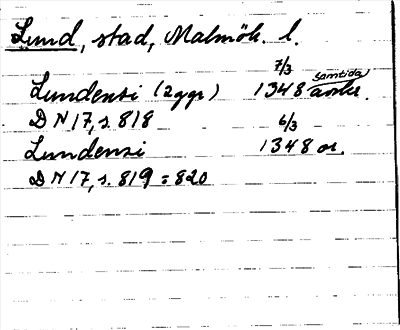 Lund, stad, Malmöh. l.
7/3
Lundensi (2 ggr) 1348 samtida avskr.
D N 17, s. 818
6/3
Lundensi 1348 or.
D N 17, s. 819 = 820